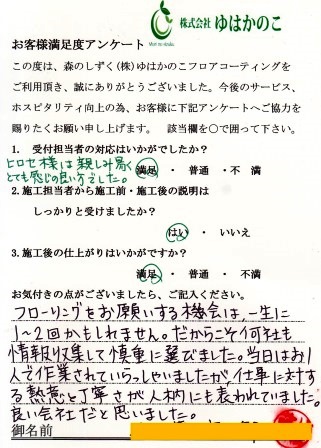 株式会社 ゆはかのこ
お客様満足度アンケート
この度は、森のしずく(株)ゆはかのこフロアコーティングを
ご利用頂き、誠にありがとうございました。今後のサービス、
ホスピタリティ向上の為、お客様に下記アンケートへご協力を
賜りたくお願い申し上げます。 該当欄を○で囲って下さい。
1. 受付担当者の対応はいかがでしたか?
ヒロセ様は親しみ易く
とても感じの良い方でした。
満足 ・ 普通 ・不 満
2.施工担当者から施工前・施工後の説明は
しっかりと受けましたか?
はい ・ いいえ
3.施工後の仕上がりはいかがですか?
満足 ・ 普通 ・ 不満
お気付きの点がございましたら、ご記入ください。
フローリングをお願いする機会は、一生に
1~2回かもしれません。だからこそ何社も
情報収集して慎重に選びました。当日はお1
人で作業されていらっしゃいましたが、仕事に対す
る熱意と丁寧さが人柄にも表われていました。
良い会社だと思いました。
御名前